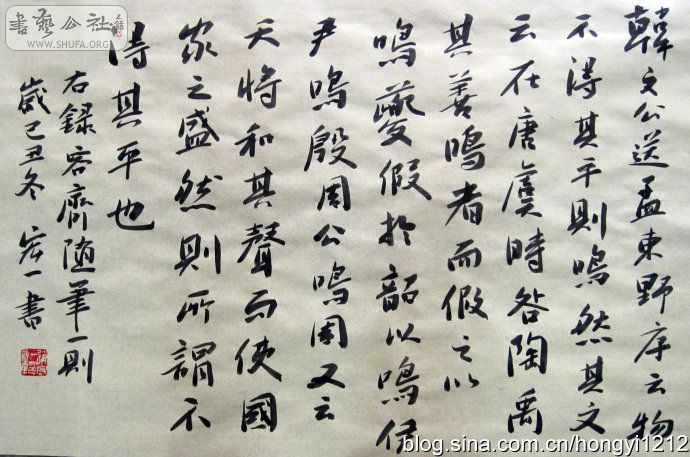 韓文公送孟東野序云物
不得其平則鳴然其文
云在唐虞時咎陶禹
其善鳴者而假之以
鳴夔假於韶以鳴伊
尹鳴殷周公鳴周又云
天將和其聲而使國
家之盛然則所謂不
得其平也
右錄容齋随筆一則
歲己丑冬宏一書
書藝公社
WWW.SHUFA.ORG
blog.sina.com.cn/hongyi1212